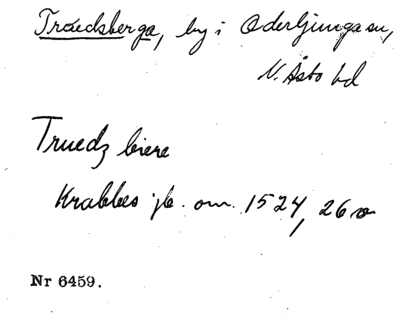 Tråedsberga, by i Oderljunga sn,
N. Åsbo hd
Truedz biere
Krabbes jb. om. 1524, 26 v
Nr 6459.